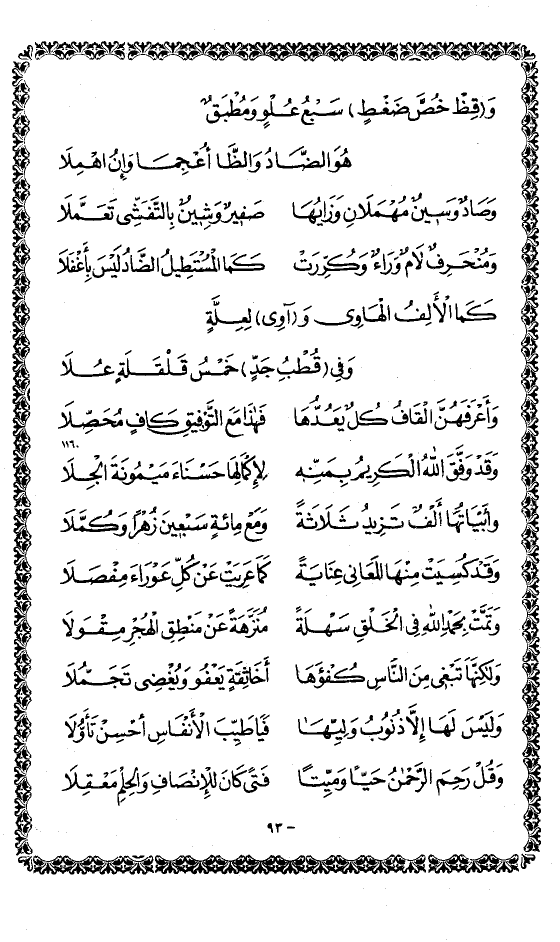 وَ(قِظْ خُصَّ ضَغْطٍ) سَبْعُ عُلْوٍ وَمُطْبَقٌ
هُوَ الضَّادُ وَالظَّا أُعْجِمَا وَإِنُ اهْمِلَا
وَصَادٌ وَسِينٌ مُهْمَلَانِ وَزَايُهَا صَفِيرٌ وَشِينٌ بِالتَّفَشِّى تَعَمَّلَا
وَمُنْحَرِفٌ لَامٌ وَرَاءٌ وَكُرِّرَتْ كَمَا الْمُسْتَطِيلُ الضَّادُ لَيْسَ بِأَغْفَلَا
كَمَا الْأَلِفُ الْهَاوِى وَ(آوِى) لِعِلَّةٍ
وَفِى (قُطْبُ جَدٍّ) خَمْسُ قَلْقَلَةٍ عُلَا
وَأَعْرَفُهُنَّ الْقَافُ كُلٌّ يَعُدُّهَا فَهٰذَا مَعَ التَّوْفِيقِ كَافٍ مُحَصِّلَا
١١٦٠
وَقَدْ وَفَّقَ اللّٰهُ الْكَرِيمُ بِمَنِّهِ لِإِكْمَالِهَا حَسْنَاءَ مَيْمُونَةَ الْجِلَا
وَأَبْيَاتُهَا أَلْفٌ تَزِيدُ ثَلَاثَةً وَمَعْ مِائَةٍ سَبْعِينَ زُهْرًا وَكُمَّلَا
وَقَدْ كُسِيَتْ مِنْهَا الْمَعَانِى عِنَايَةً كَمَا عَرِيَتْ عَنْ كُلِّ عَوْرَاءَ مِفْصَلَا
وَتَمَّتْ بِحَمْدِ اللّٰهِ فِى الْخَلْقِ سَهْلَةً مُنَزَّهَةً عَنْ مَنْطِقِ الْهُجْرِ مِقْوَلَا
وَلٰكِنَّهَا تَبْغِى مِنَ النَّاسِ كُفْؤَهَا أَخَا ثِقَةٍ يَعْفُو وَيُغْضِى تَجَمُّلَا
وَلَيْسَ لَهَا إِلَّا ذُنُوبُ وَلِيِّهَا فَيَا طَيِّبَ الْأَنْفَاسِ أَحْسِنْ تَأَوُّلَا
وَقُلْ رَحِمَ الرَّحْمٰنُ حَيًّا وَمَيِّتًا فَتًى كَانَ لِلْإِنْصَافِ وَالْحِلْمِ مَعْقِلَا
- ٩٣